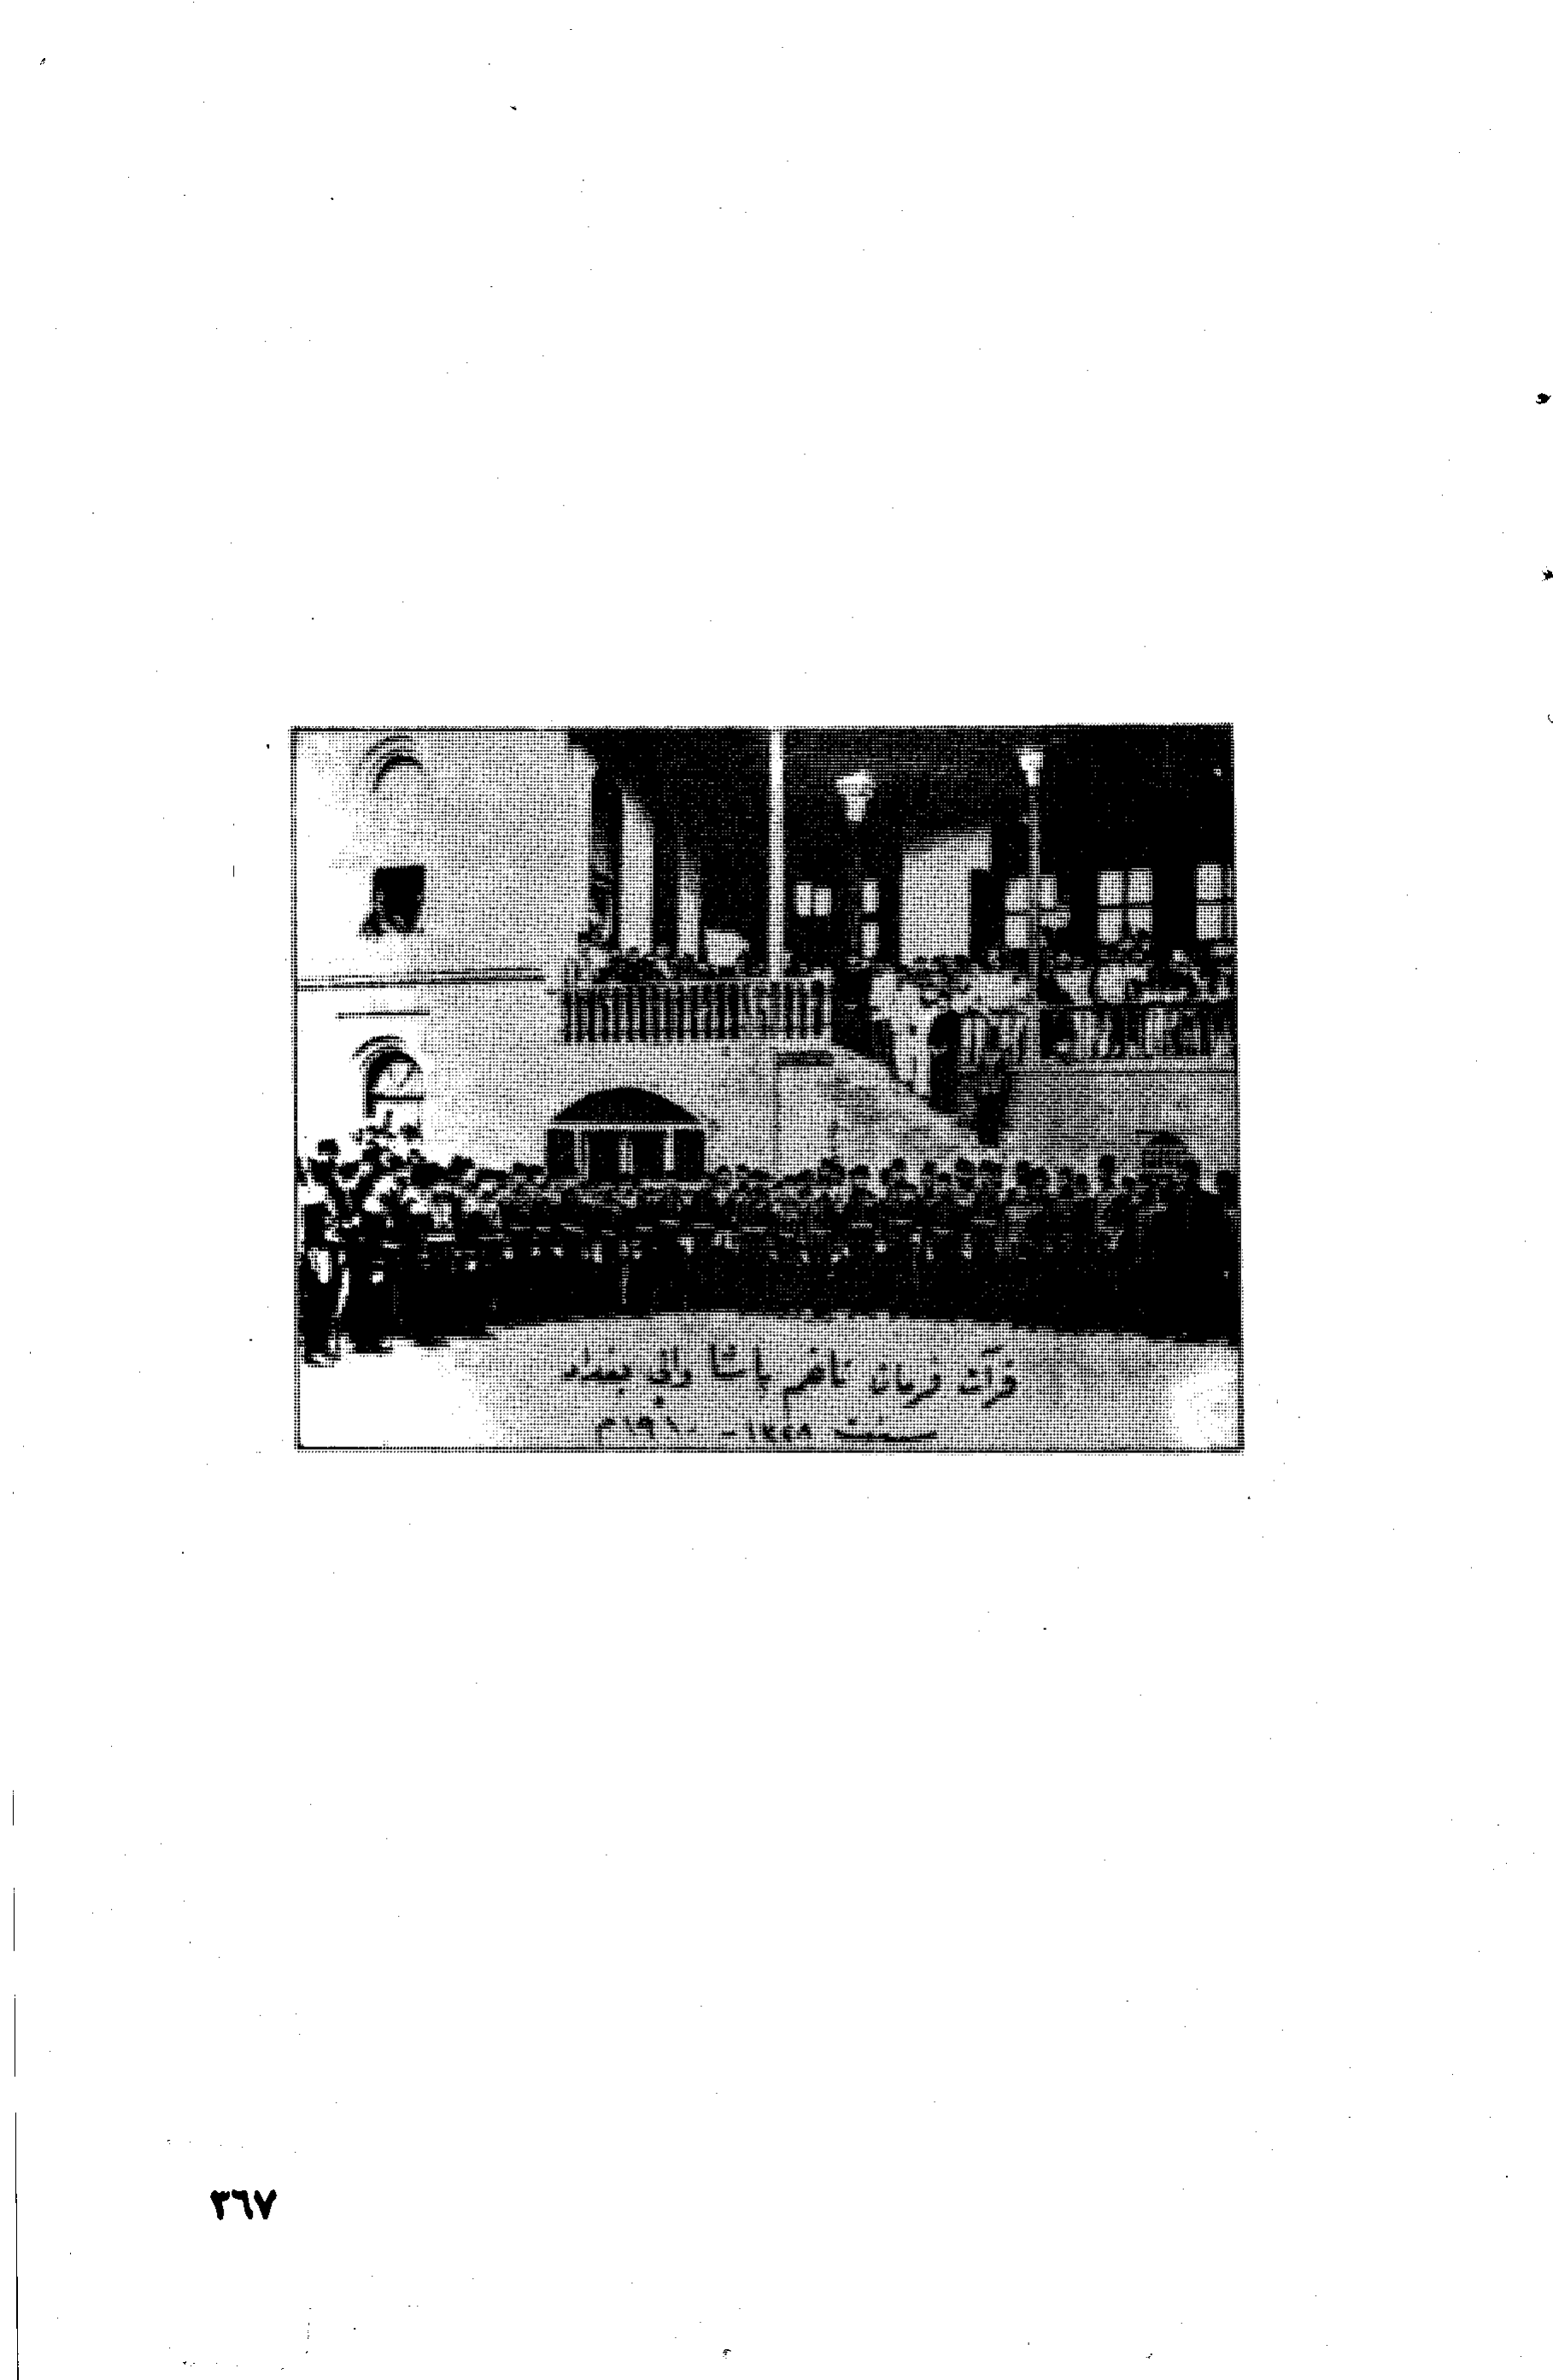 قرآت فرمان ناظم پاشا والي بغداد
سنة ١٣٢٩ - ١٩١٠م
٣٦٧